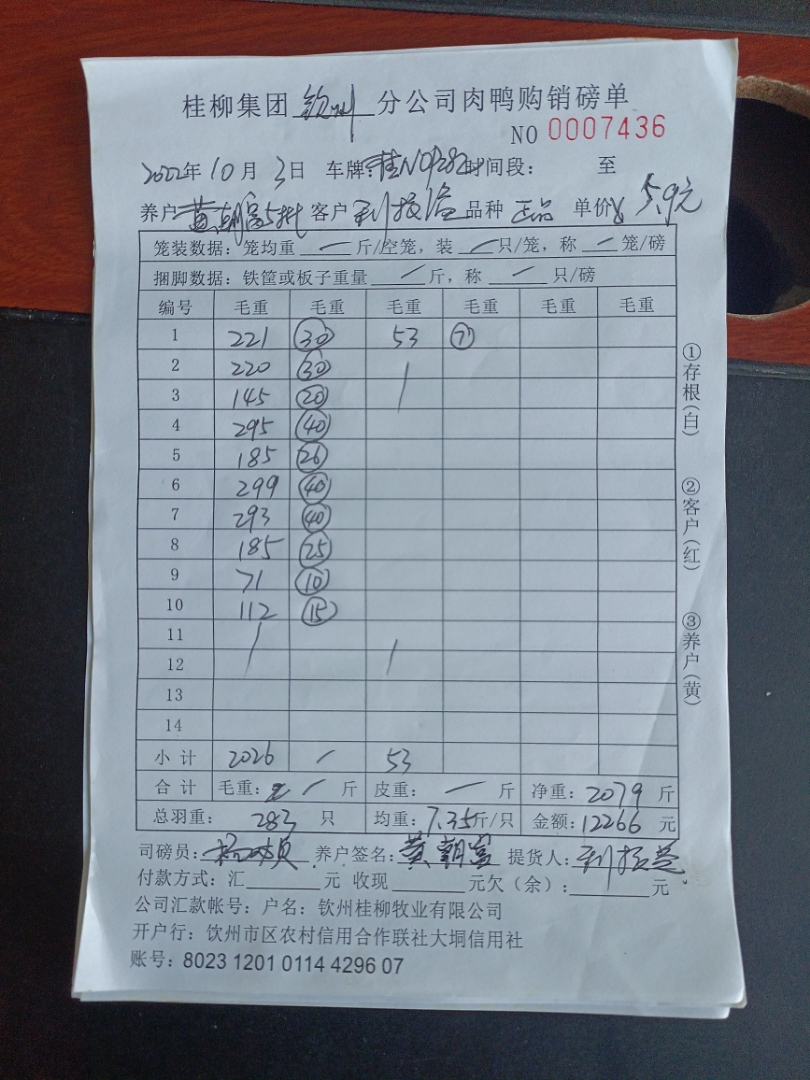 桂柳集团 钦州 分公司肉鸭购销磅单
NO 0007436
2022年10月3日 车牌: 时间段: 至
养户 黄朝富5批 客户 品种 正品 单价 5.9元
笼装数据: 笼均重 — 斤/空笼, 装 — 只/笼, 称 — 笼/磅
捆脚数据: 铁筐或板子重量 — 斤, 称 — 只/磅
编号 毛重 毛重 毛重 毛重 毛重 毛重
1 221 30 53 7
2 220 30
3 145 20
4 295 40
5 185 26
6 299 40
7 293 40
8 185 25
9 71 10
10 112 15
11
12
13
14
小计 2026 53
合计 毛重: 斤 皮重: — 斤 净重: 2079 斤
总羽重: 283 只 均重: 7.35斤/只 金额: 12266 元
司磅员: 养户签名: 黄朝富 提货人:
付款方式: 汇 元 收现 元欠(余): 元
公司汇款帐号: 户名: 钦州桂柳牧业有限公司
开户行: 钦州市区农村信用合作联社大垌信用社
账号: 8023 1201 0114 4296 07
①存根(白)
②客户(红)
③养户(黄)